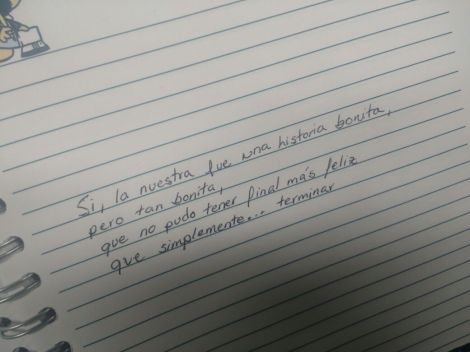 Si, la nuestra fue una historia bonita,
pero tan bonita,
que no pudo tener final más feliz
que simplemente... terminar